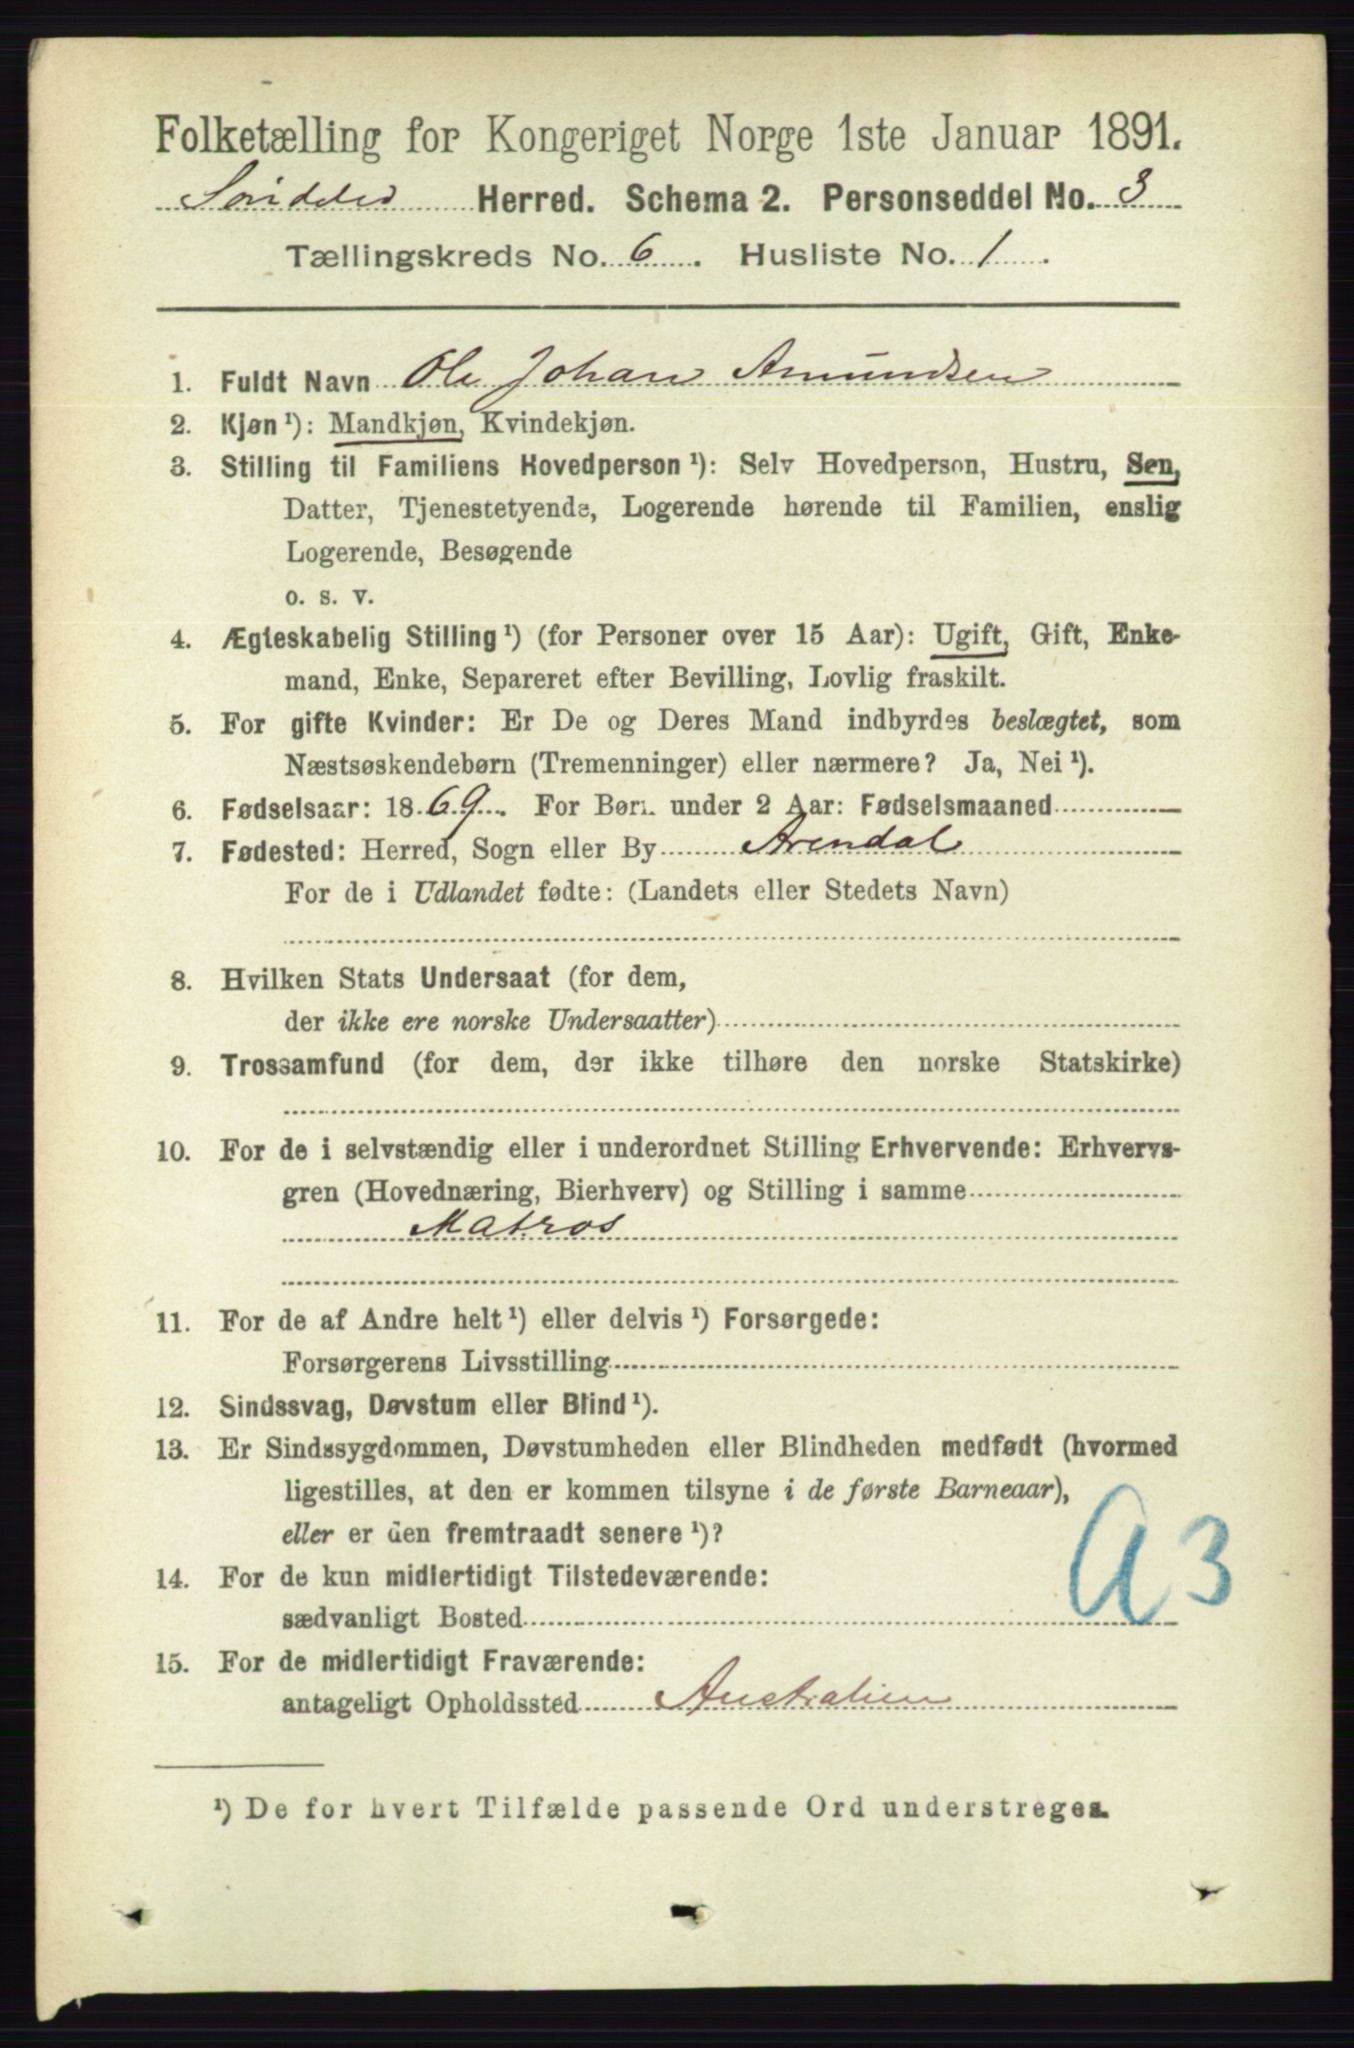 Folketælling for Kongeriget Norge 1ste Januar 1891.
Søndeled Herred. Schema 2. Personseddel No. 3
Tællingskreds No. 6. Husliste No. 1.
1. Fuldt Navn Ole Johan Amundsen
2. Kjøn¹): Mandkjøn, Kvindekjøn.
3. Stilling til Familiens Hovedperson¹): Selv Hovedperson, Hustru, Søn,
Datter, Tjenestetyende, Logerende hørende til Familien, enslig
Logerende, Besøgende
o. s. v.
4. Ægteskabelig Stilling¹) (for Personer over 15 Aar): Ugift, Gift, Enke-
mand, Enke, Separeret efter Bevilling, Lovlig fraskilt.
5. For gifte Kvinder: Er De og Deres Mand indbyrdes beslægtet, som
Næstsøskendebørn (Tremenninger) eller nærmere? Ja, Nei¹).
6. Fødselsaar: 1869. For Børn under 2 Aar: Fødselsmaaned
7. Fødested: Herred, Sogn eller By Arendal
For de i Udlandet fødte: (Landets eller Stedets Navn)
8. Hvilken Stats Undersaat (for dem,
der ikke ere norske Undersaatter)
9. Trossamfund (for dem, der ikke tilhøre den norske Statskirke)
10. For de i selvstændig eller i underordnet Stilling Erhvervende: Erhvervs-
gren (Hovednæring, Bierhverv) og Stilling i samme
Matros
11. For de af Andre helt¹) eller delvis¹) Forsørgede:
Forsørgerens Livsstilling
12. Sindssvag, Døvstum eller Blind¹).
13. Er Sindssygdommen, Døvstumheden eller Blindheden medfødt (hvormed
ligestilles, at den er kommen tilsyne i de første Barneaar),
eller er den fremtraadt senere¹)?
A3
14. For de kun midlertidigt Tilstedeværende:
sædvanligt Bosted
15. For de midlertidigt Fraværende:
antageligt Opholdssted Australien
¹) De for hvert Tilfælde passende Ord understreges.